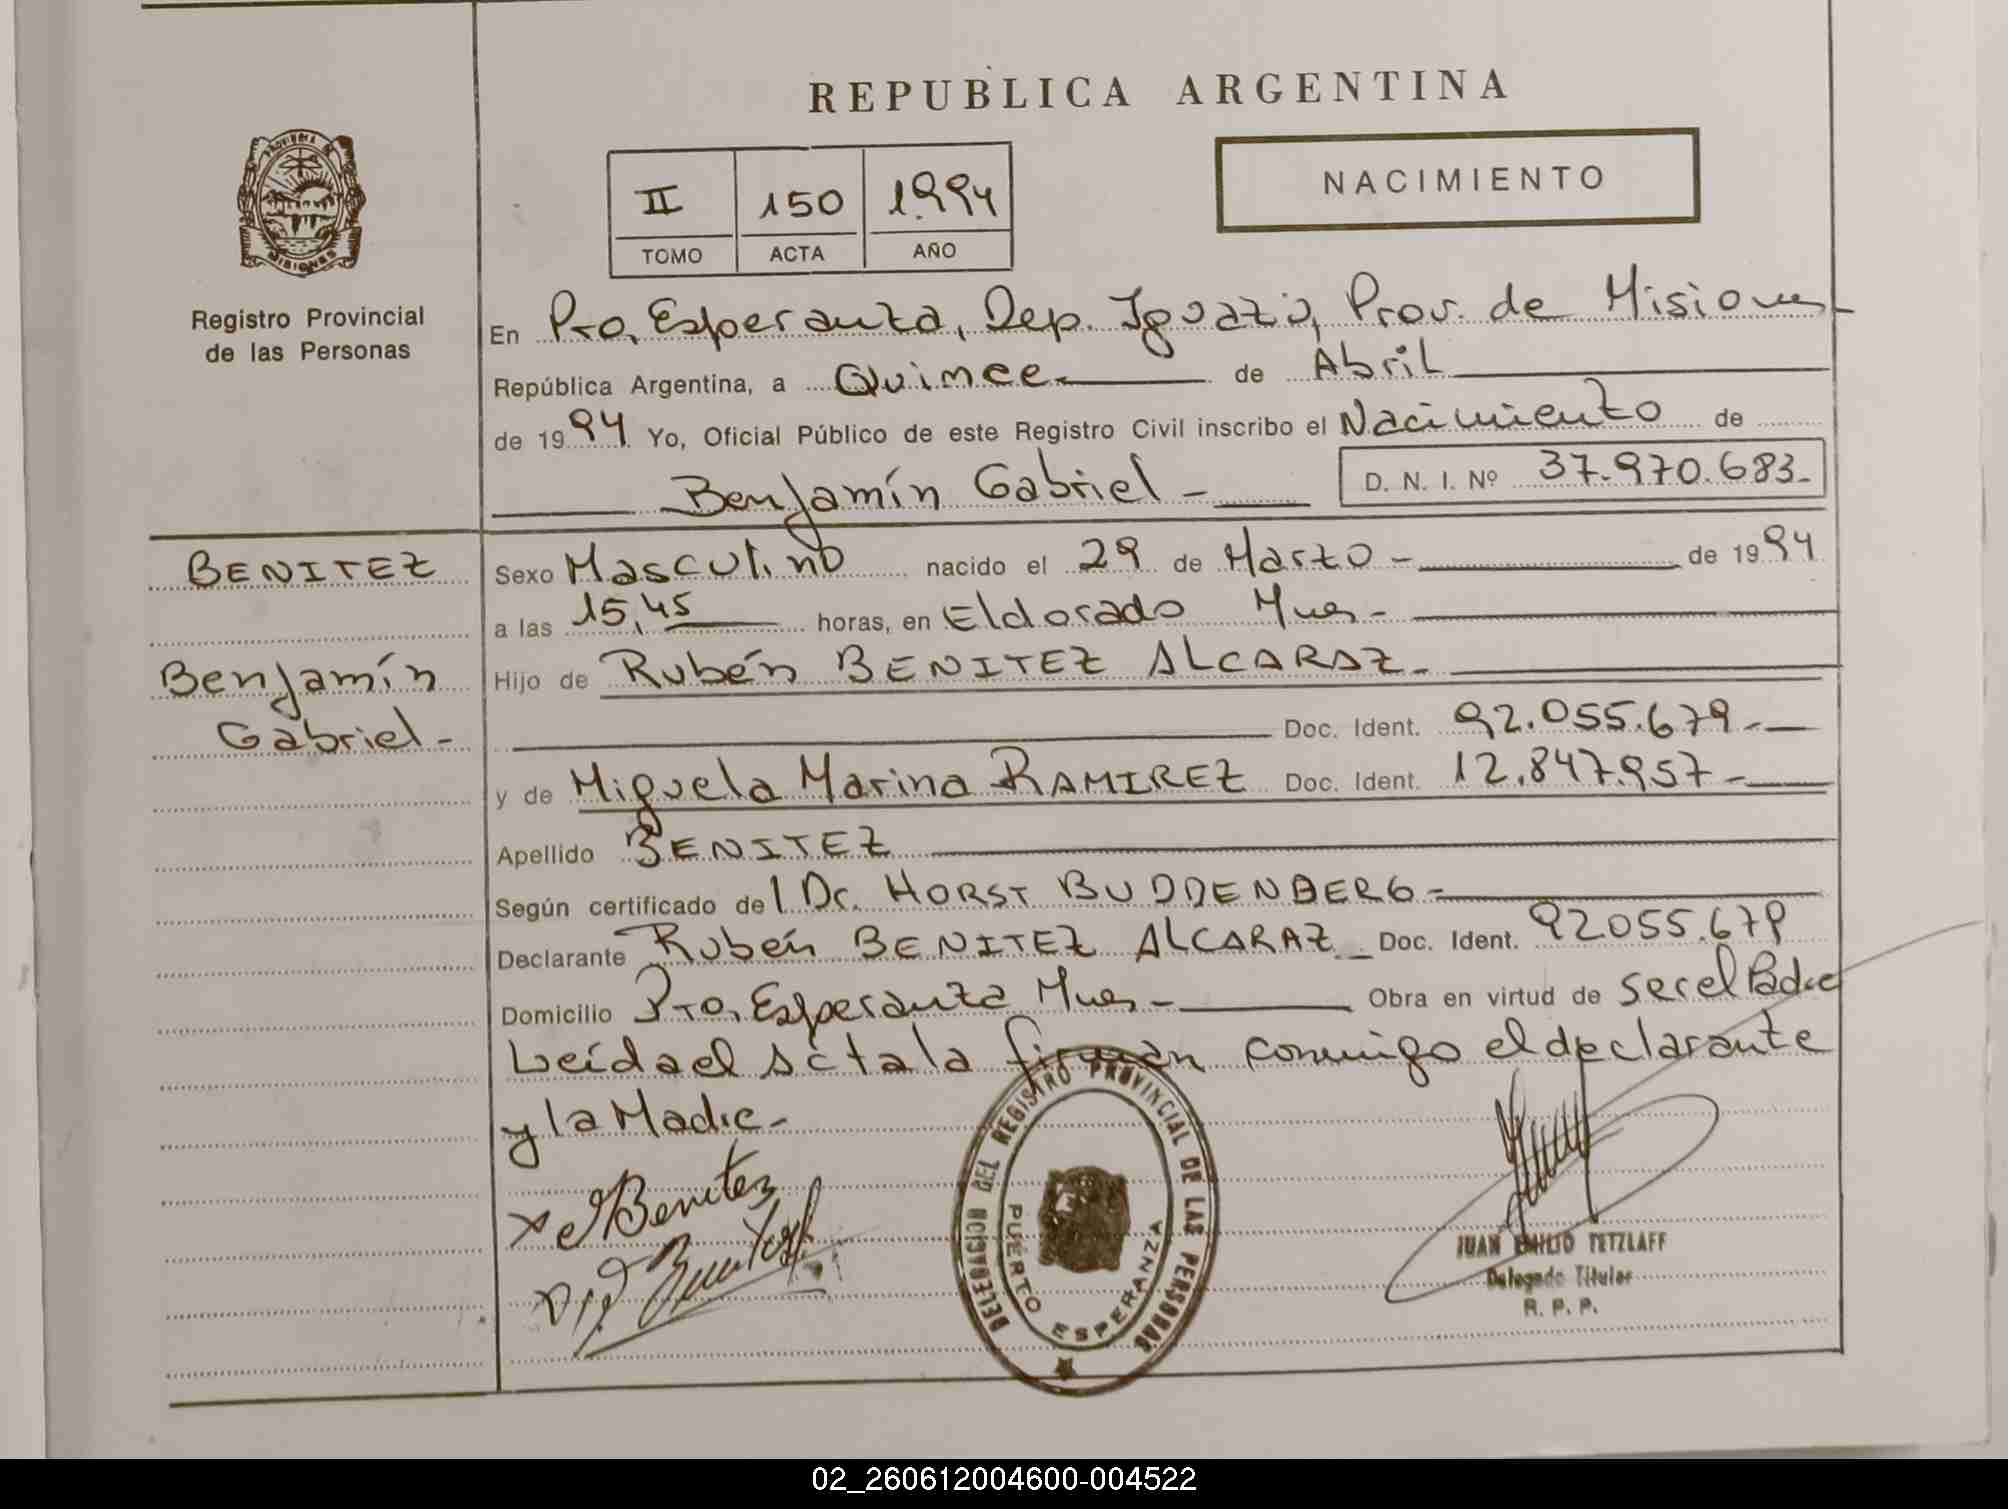 REPUBLICA ARGENTINA
PROVINCIA DE
MISIONES
Registro Provincial
de las Personas
II 150 1994
TOMO ACTA AÑO
NACIMIENTO
En Pto. Esperanza, Dep. Iguazú, Prov. de Misiones
República Argentina, a Quince de Abril
de 1994 Yo, Oficial Público de este Registro Civil inscribo el Nacimiento de
Benjamín Gabriel - D. N. I. Nº 37.970.683.-
BENITEZ
Benjamín
Gabriel -
Sexo Masculino nacido el 29 de Marzo - de 1994
a las 15,45 horas, en Eldorado Mnes -
Hijo de Rubén BENITEZ ALCARAZ.-
Doc. Ident. 92.055.679.-
y de Miguela Marina RAMIREZ Doc. Ident. 12.847.957 -
Apellido BENITEZ
Según certificado del Dr. HORST BUDDENBERG -
Declarante Rubén BENITEZ ALCARAZ - Doc. Ident. 92055.679
Domicilio Pto. Esperanza Mnes - Obra en virtud de ser el Padre
Leída el acta la firman conmigo el declarante
y la Madre -
Benitez
DELEGACION DEL REGISTRO PROVINCIAL DE LAS PERSONAS
PUERTO ESPERANZA
JUAN EMILIO TETZLAFF
Delegado Titular
R. P. P.
02_260612004600-004522